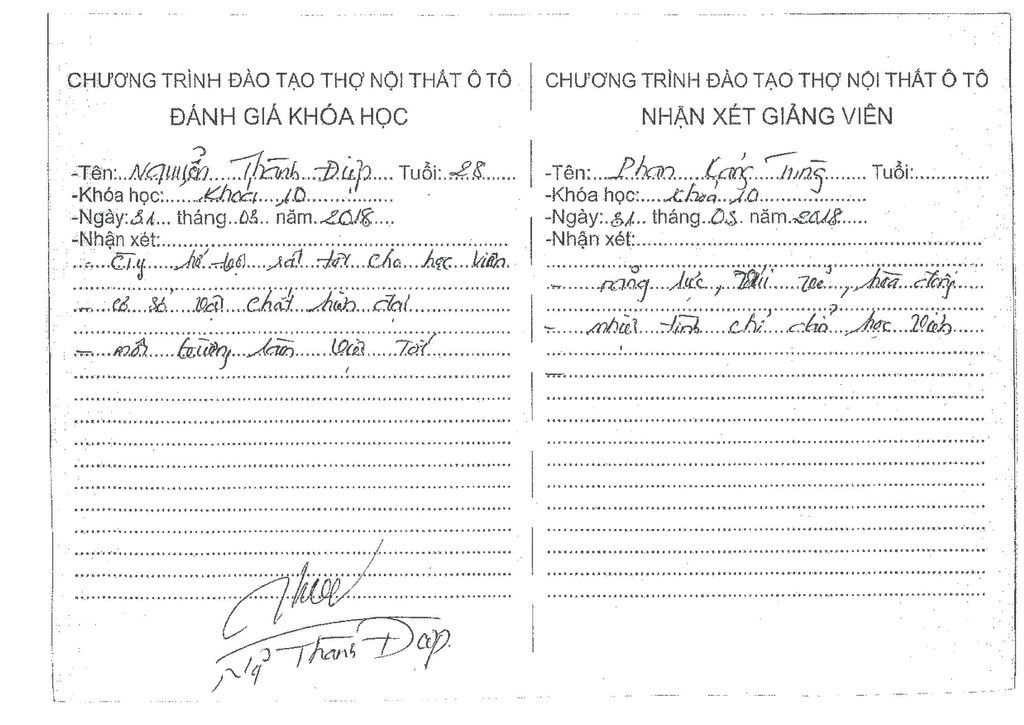 CHƯƠNG TRÌNH ĐÀO TẠO THỢ NỘI THẤT Ô TÔ
ĐÁNH GIÁ KHÓA HỌC
-Tên: Nguyễn Thành Điệp Tuổi: 28
-Khóa học: Khoá 10
-Ngày: 31 tháng 03 năm 2018
-Nhận xét:
- CTy hỗ tợ rất tốt cho học viên
- cơ sở vật chất hiện đại
- môi trường làm việc Tốt
Thành Điệp
CHƯƠNG TRÌNH ĐÀO TẠO THỢ NỘI THẤT Ô TÔ
NHẬN XÉT GIẢNG VIÊN
-Tên: Phan Tùng Tuổi:
-Khóa học: khoá 10
-Ngày: 31 tháng 03 năm 2018
-Nhận xét:
- năng lực, vui vẻ, hòa đồng
- nhiệt tình chỉ dẫn học viên
-